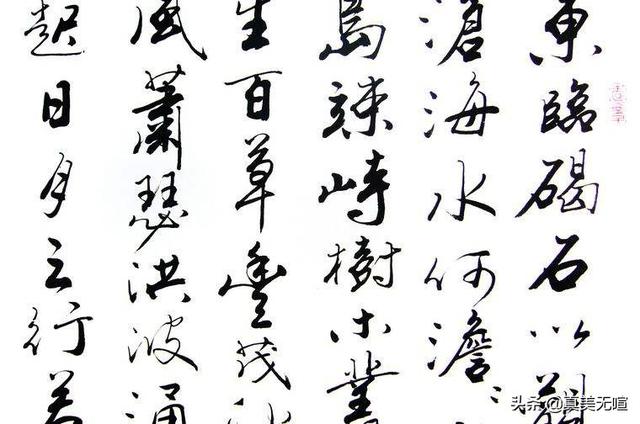 東臨碣石以觀
滄海水何澹
島竦峙樹木叢
生百草豐茂秋
風蕭瑟洪波涌
起日月之行若
头条 @真美无喧